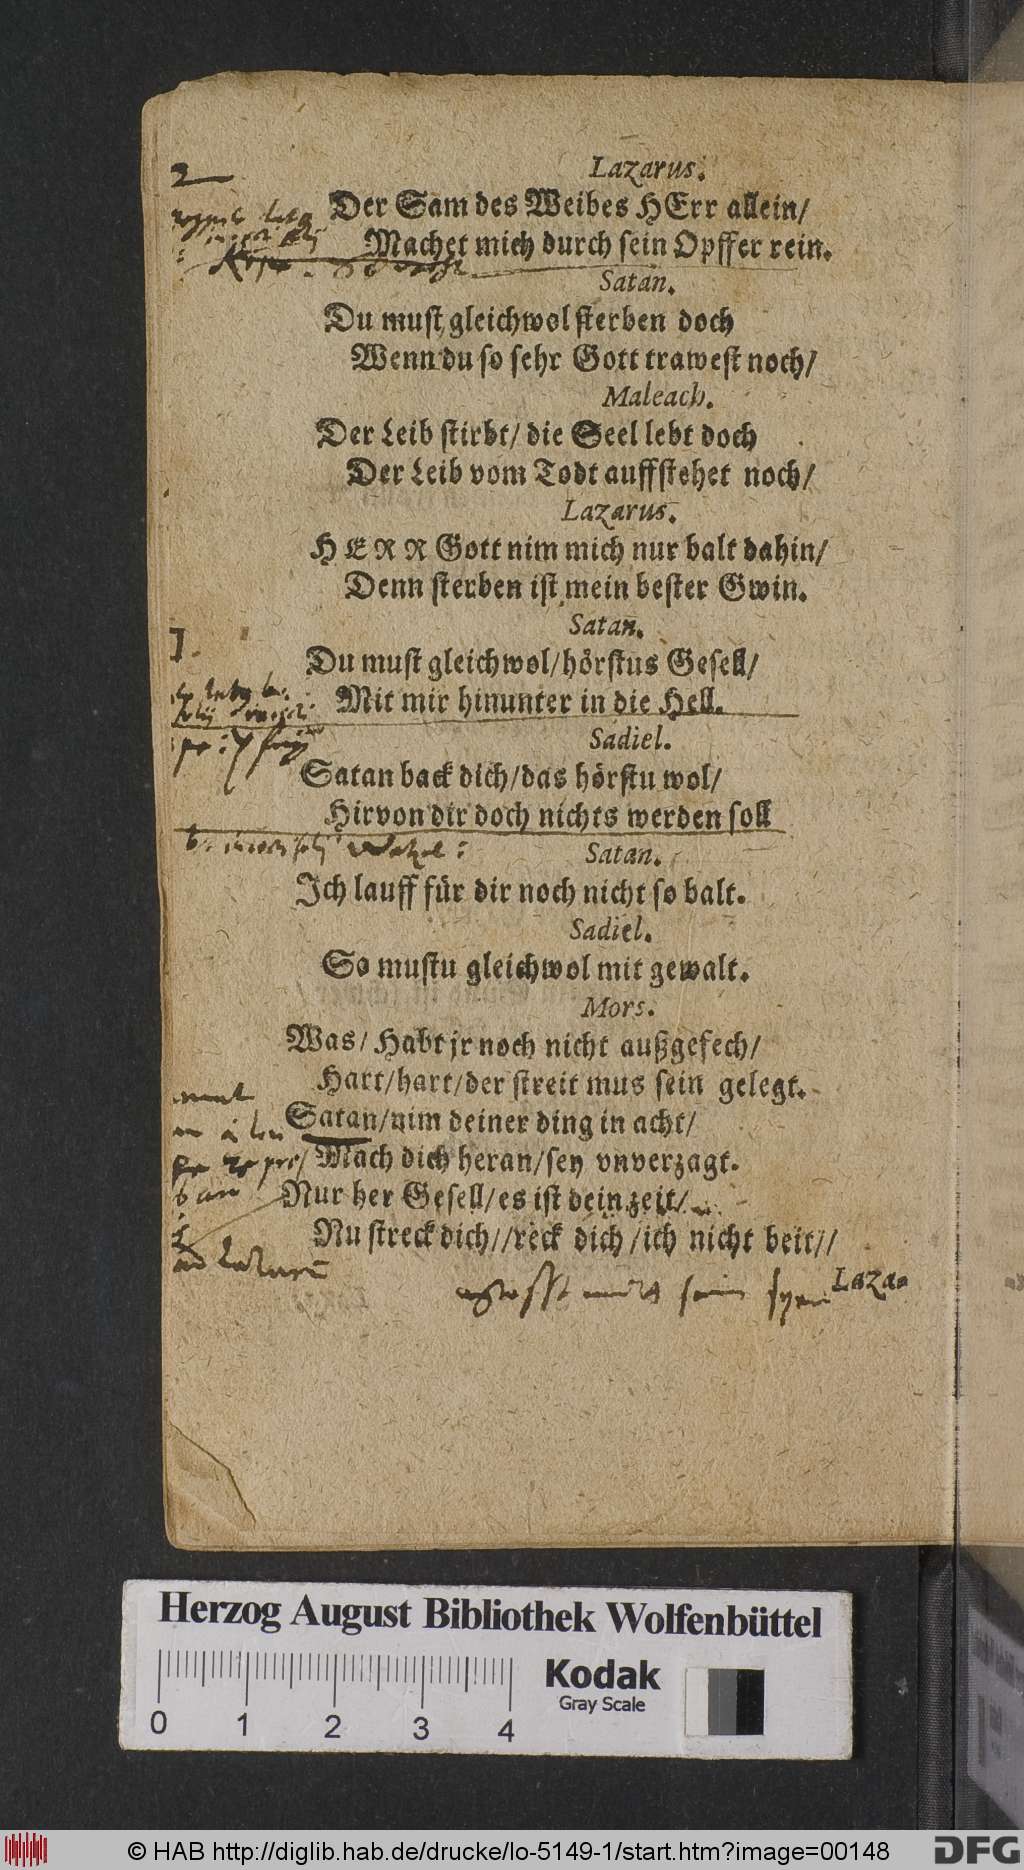 2
Lazarus.
Der Sam des Weibes HErr allein/
Machet mich durch sein Opffer rein.
Satan.
Du must gleichwol sterben doch
Wenn du so sehr Gott trawest noch/
Maleach.
Der Leib stirbt/ die Seel lebt doch
Der Leib vom Todt auffstehet noch/
Lazarus.
HERR Gott nim mich nur balt dahin/
Denn sterben ist mein bester Gwin.
Satan.
Du must gleichwol/hörstus Gesell/
Mit mir hinunter in die Hell.
Sadiel.
Satan back dich/das hörstu wol/
Hirvon dir doch nichts werden soll
Satan.
Ich lauff für dir noch nicht so balt.
Sadiel.
So mustu gleichwol mit gewalt.
Mors.
Was/ Habt jr noch nicht außgefech/
Hart/hart/der streit mus sein gelegt.
Satan/nim deiner ding in acht/
Mach dich heran/sey vnverzagt.
Nur her Gesell/es ist dein zeit/
Nu streck dich//reck dich/ich nicht beit//
Laza-
Herzog August Bibliothek Wolfenbüttel
Kodak
Gray Scale
0 1 2 3 4
© HAB http://diglib.hab.de/drucke/lo-5149-1/start.htm?image=00148
DFG